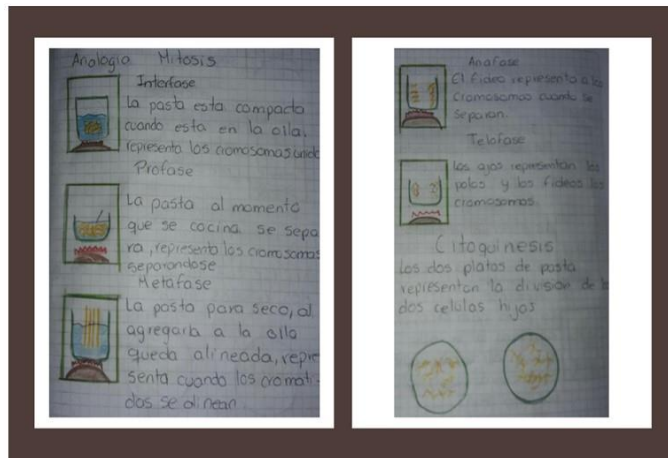 Anologia Mitosis
Interfase
La pasta esta compacta
cuando esta en la olla,
representa los cromosomas unido
Profase
La pasta al momento
que se cocina se sepa
ra, representa los cromosomas
separandose
Metafase
La pasta para seco, al
agregarla a la olla
queda alineada, repre
senta cuando los cromati-
dos se alinean
Anafase
El fideo representa a los
cromosomas cuando se
separan.
Telofase
Los ajos representan los
polos y los fideos los
cromosomas.
Citoquinesis
Los dos platos de pasta
representan la división de
dos celulas hijas